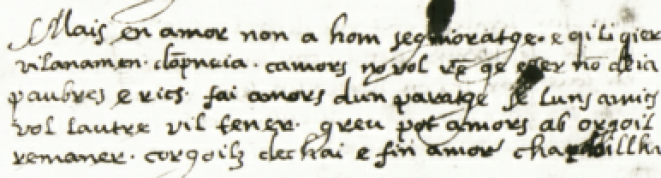 Mais en amor non a hom segnoratge · e qi li qier
vilanamen · dōpneia · camors no vol rē qe eser nō deia
paubres e rics · fai amors dun paratge Se luns amis
vol lautre vil tener · greu pot amors ab orgoil
remaner · corgoilz dechai e fin amor